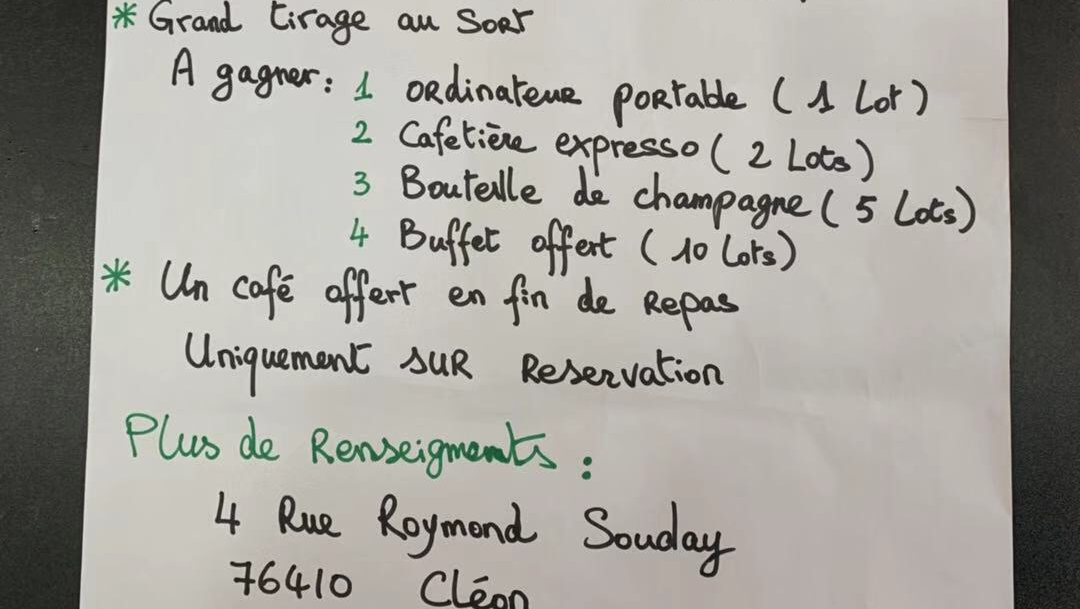 * Grand tirage au sort
A gagner : 1 ordinateur portable ( 1 Lot )
2 Cafetière expresso ( 2 Lots )
3 Bouteille de champagne ( 5 Lots )
4 Buffet offert ( 10 Lots )
* Un café offert en fin de repas
Uniquement sur Reservation
Plus de Renseigments :
4 Rue Roymond Souday
76410 Cléon